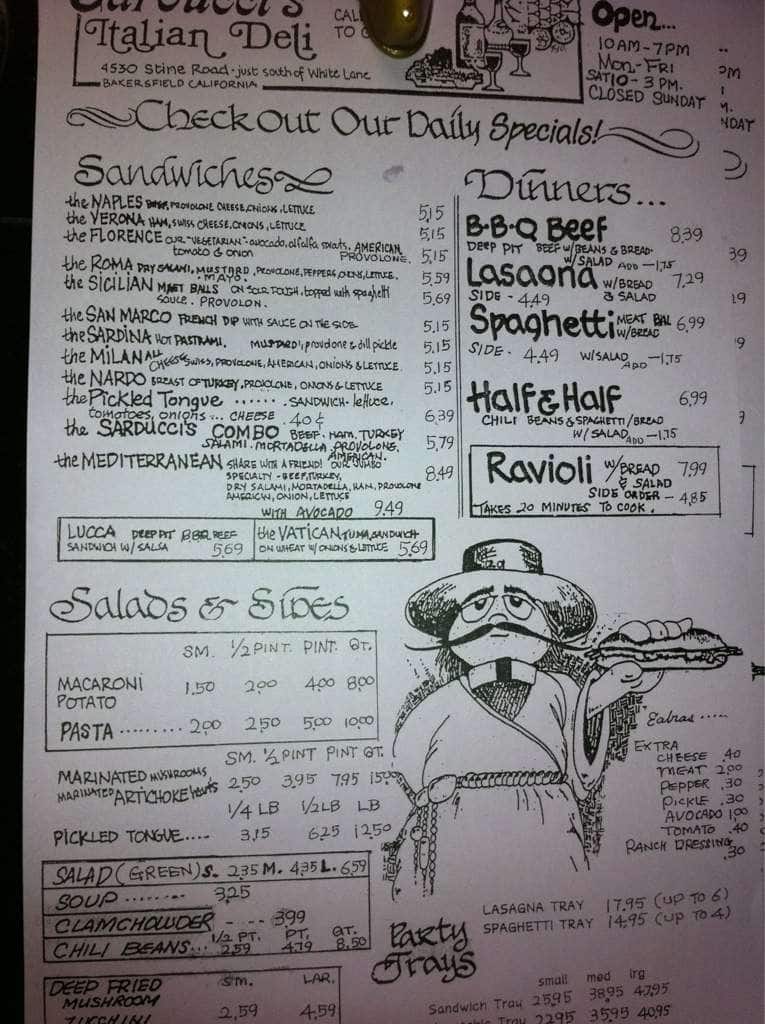 Italian Deli
CAL
TO
4530 Stine Road - just south of White Lane
BAKERSFIELD CALIFORNIA
Open...
10AM - 7PM
MON - FRI
SAT 10 - 3 PM.
CLOSED SUNDAY
Check out Our Daily Specials!
Sandwiches
the NAPLES BEEF, PROVOLONE CHEESE, ONIONS, LETTUCE 5.15
the VERONA HAM, SWISS CHEESE, ONIONS, LETTUCE 5.15
the FLORENCE OUR "VEGETARIAN" - avocado, alfalfa sprouts, AMERICAN
tomato & onion PROVOLONE. 5.15
the ROMA DRY SALAMI, MUSTARD, PROVOLONE, PEPPERS, ONIONS, LETTUCE. 5.59
MAYO.
the SICILIAN MEAT BALLS ON SOUR DOUGH, topped with spaghetti 5.69
SOUCE. PROVOLON.
the SAN MARCO FRENCH DIP WITH SAUCE ON THE SIDE 5.15
the SARDINA HOT PASTRAMI. MUSTARD, provolone & dill pickle 5.15
the MILAN ALL CHEESE SWISS, PROVOLONE, AMERICAN, ONIONS & LETTUCE 5.15
the NARDO BREAST OF TURKEY, PROVOLONE, ONIONS & LETTUCE 5.15
the Pickled Tongue ...... SANDWICH - lettuce,
tomatoes, onions ... CHEESE .40¢ 6.39
the SARDUCCI'S COMBO BEEF, HAM, TURKEY
SALAMI, MORTADELLA, PROVOLONE, 5.79
AMERICAN.
the MEDITERRANEAN SHARE WITH A FRIEND! OUR JUMBO 8.49
SPECIALTY - BEEF, TURKEY,
DRY SALAMI, MORTADELLA, HAM, PROVOLONE
AMERICAN, ONION, LETTUCE
WITH AVOCADO 9.49
LUCCA DEEP PIT B.B.Q. BEEF
SANDWICH W/ SALSA 5.69
the VATICAN TUNA SANDWICH
ON WHEAT W/ ONIONS & LETTUCE 5.69
Dinners...
B-B-Q Beef 8.39
DEEP PIT BEEF W/ BEANS & BREAD
W/ SALAD ADD - 1.75
Lasagna W/ BREAD 7.29
SIDE - 4.49 & SALAD
Spaghetti MEAT BAL 6.99
W/ BREAD
SIDE. 4.49 W/ SALAD ADD - 1.75
Half & Half 6.99
CHILI BEANS & SPAGHETTI / BREAD
W/ SALAD ADD - 1.75
Ravioli W/ BREAD 7.99
& SALAD
SIDE ORDER - 4.85
TAKES 20 MINUTES TO COOK.
Salads & Sides
SM. 1/2 PINT. PINT. QT.
MACARONI 1.50 2.00 4.00 8.00
POTATO
PASTA ......... 2.00 2.50 5.00 10.00
SM. 1/2 PINT PINT QT.
MARINATED MUSHROOMS 2.50 3.95 7.95 15.00
MARINATED ARTICHOKE HEARTS
1/4 LB 1/2 LB LB
PICKLED TONGUE.... 3.15 6.25 12.50
SALAD (GREEN) S. 2.35 M. 4.35 L. 6.59
SOUP ........ 3.25
CLAMCHOWDER - - - 3.99
1/2 PT. PT. QT.
CHILI BEANS... 2.59 4.79 8.50
DEEP FRIED SM. LAR.
MUSHROOM
ZUCCHINI 2.59 4.59
Extras .....
EXTRA
CHEESE .40
MEAT 2.00
PEPPER .30
PICKLE .30
AVOCADO 1.00
TOMATO .40
RANCH DRESSING .30
Party
Trays
LASAGNA TRAY 17.95 (UP TO 6)
SPAGHETTI TRAY 14.95 (UP TO 4)
small med lrg
Sandwich Tray 25.95 38.95 47.95
Tray 22.95 35.95 40.95